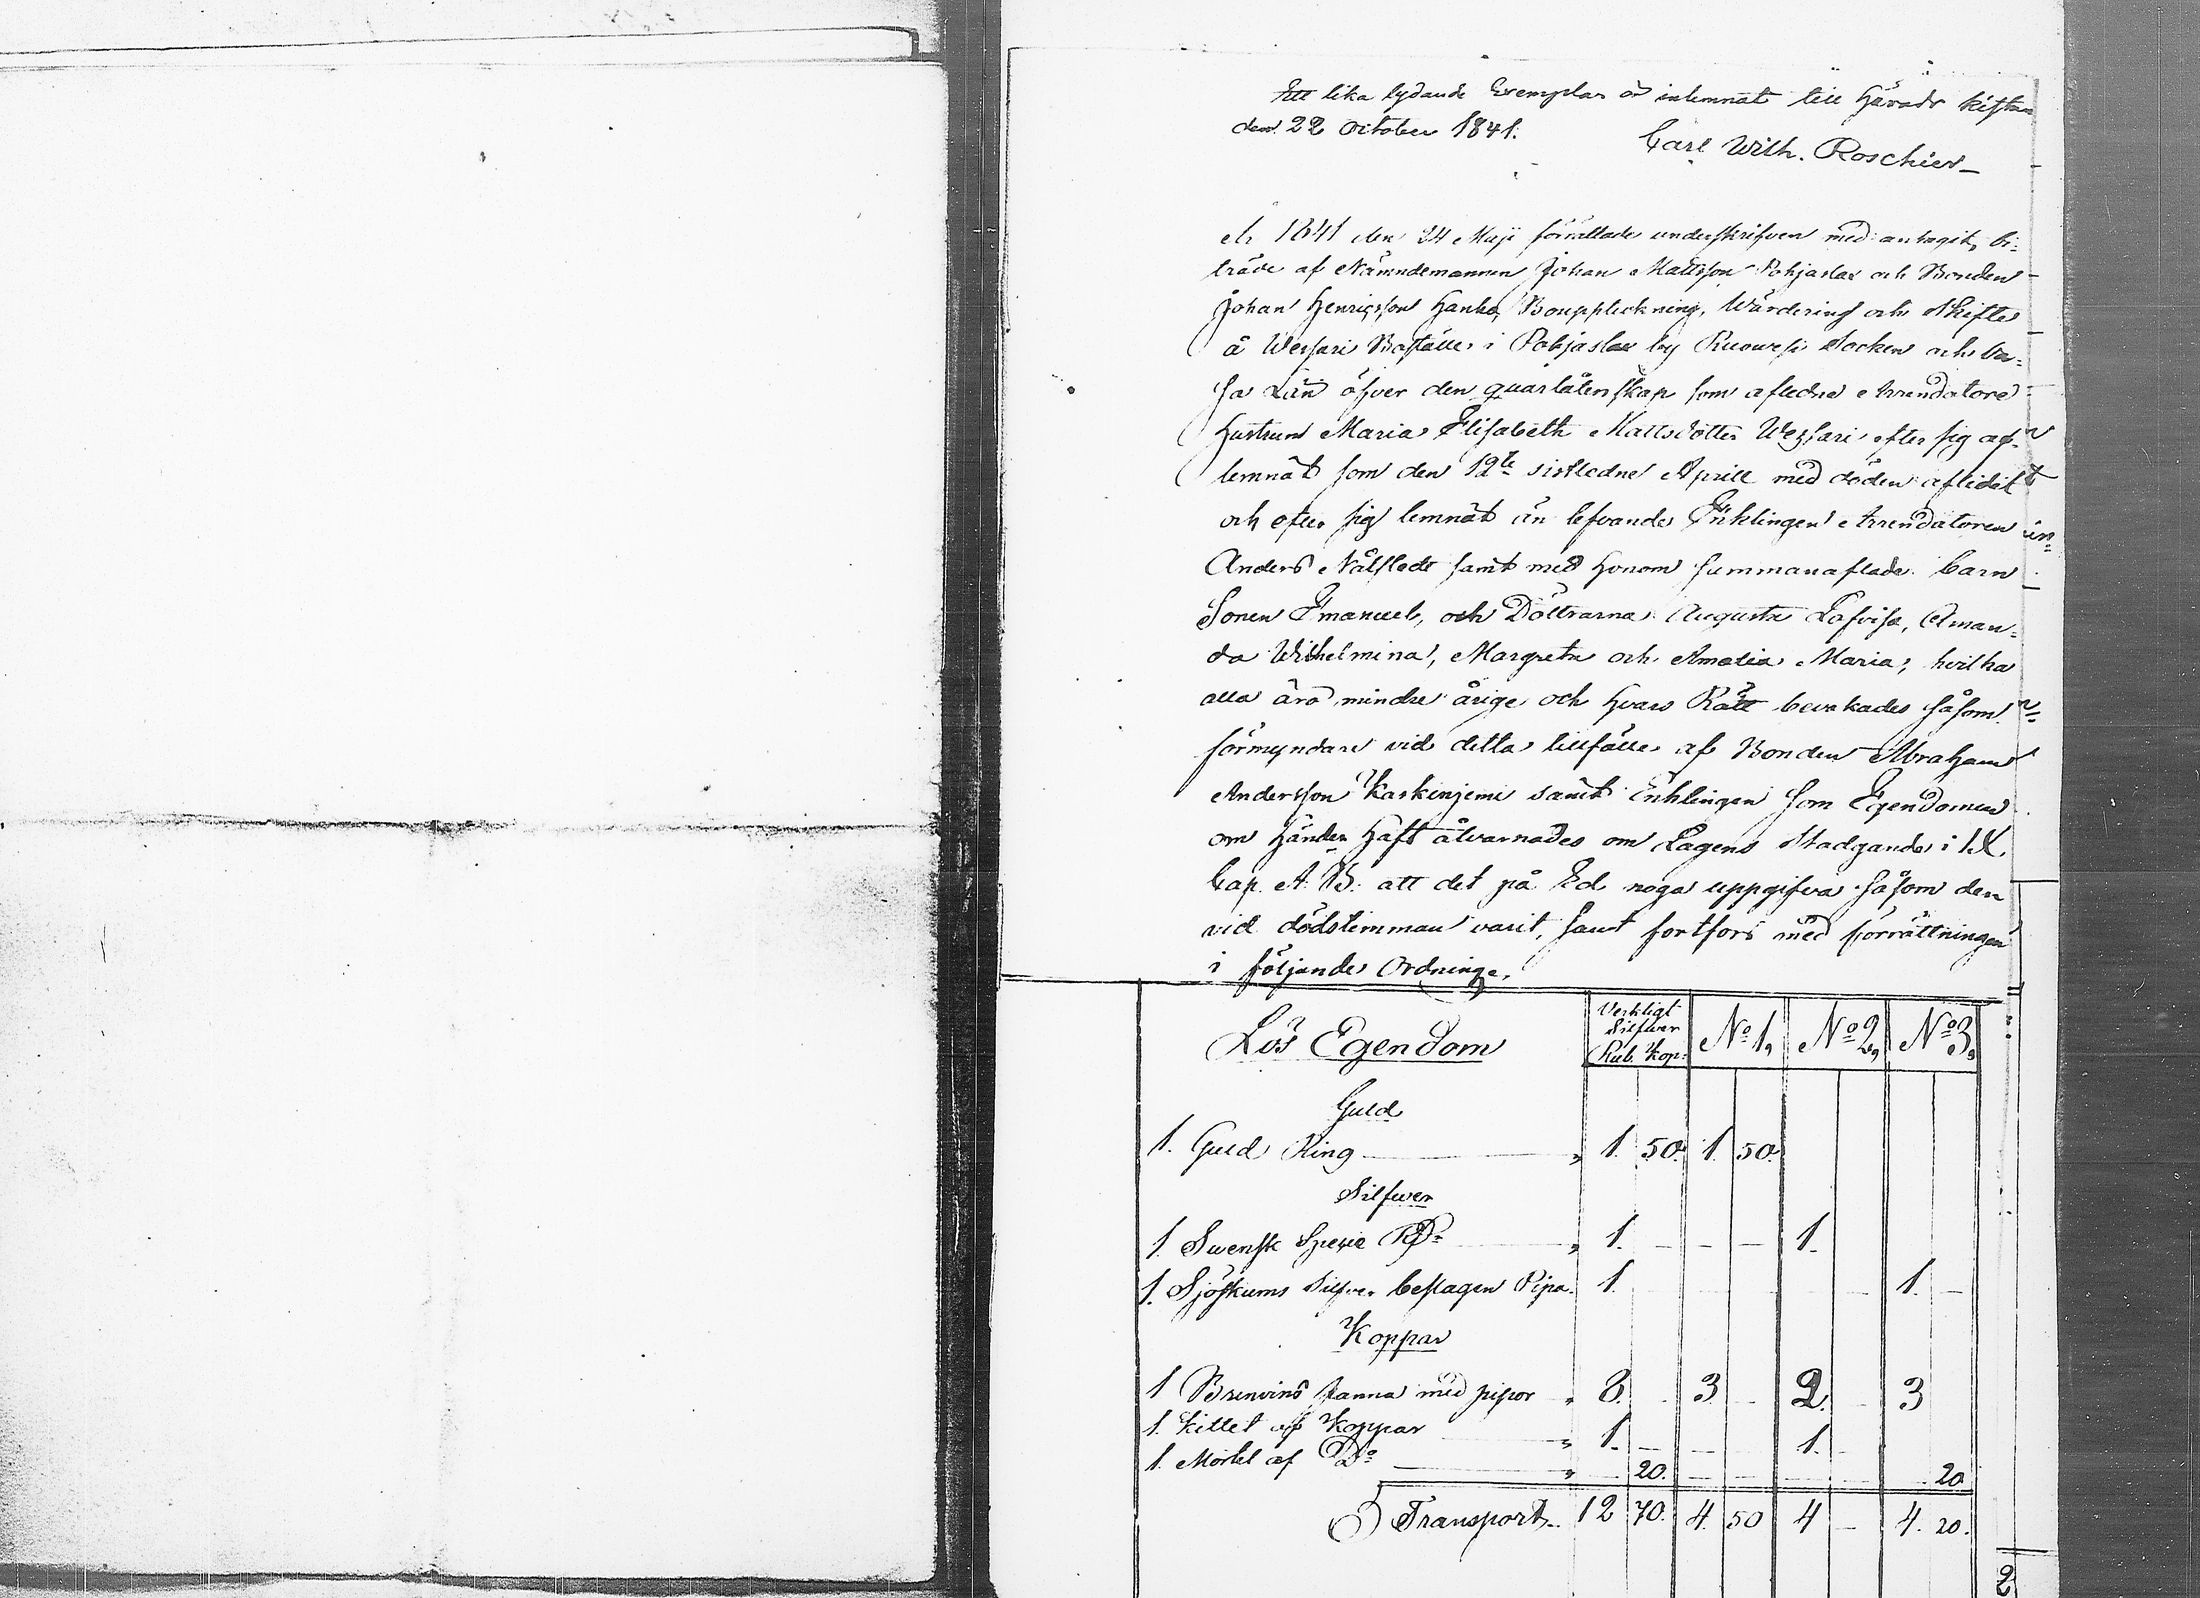 Ett lika lydande Exemplar är inlemnat till Härads kistan
den 22 October 1841.
Carl Wilh. Roschier
År 1841 den 24 Maji förrättade underskrifven med antagit, bi-
träde af Nämndemannen Johan Mattsson Pohjaslax och Bonden
Johan Henricsson Hanho, Bouppteckning, Wärdering och Skifte
å Wessari Boställe i Pohjaslax by Ruowesi Socken och Va-
sa Län öfver den quarlåtenskap som aflednе Arrendatore
Hustrun Maria Elisabeth Mattsdotter Wessari efter sig
lemnat som den 12te sistledne Aprill med döden aflidit
och efter sig lemnat än lefvande Enklingen Arrendatoren
Anders Nätstedt samt med honom sammanaflade barn
Sonen Emanuel, och Döttrarna Augusta Lovisa, Aman-
da Wilhelmina, Margreta och Amalia Maria, hvilka
alla äro minder årige och hvars Rätt bevakades såsom
förmyndare vid detta tillfälle af Bonden Abraham
Andersson Kaskinjemi samt Enklingen som Egendomen
om händer haft åtvarnades om Lagens Stadgande i IX
Cap. Ä. B. att det på Ed noga uppgifva såsom den
vid dödstimman varit, samt fortfors med förrättningen
i följande Ordning.
Lös Egendom Verkligt Silfwer Rub. Kop. No 1, No 2, No 3,
Guld
1. Guld Ring 1. 50. 1. 50.
Silfwer
1. Swensk Specie RDr 1. 1.
1. Sjöskums Silfver beslagen Pipa 1. 1.
Koppar
1 Brenvins panna med pipor 8. 3 2. 3
1. Kittel af Koppar 1. 1.
1. Mortel af Do 20. 20
Transport 12 70. 4. 50 4 4. 20.
2